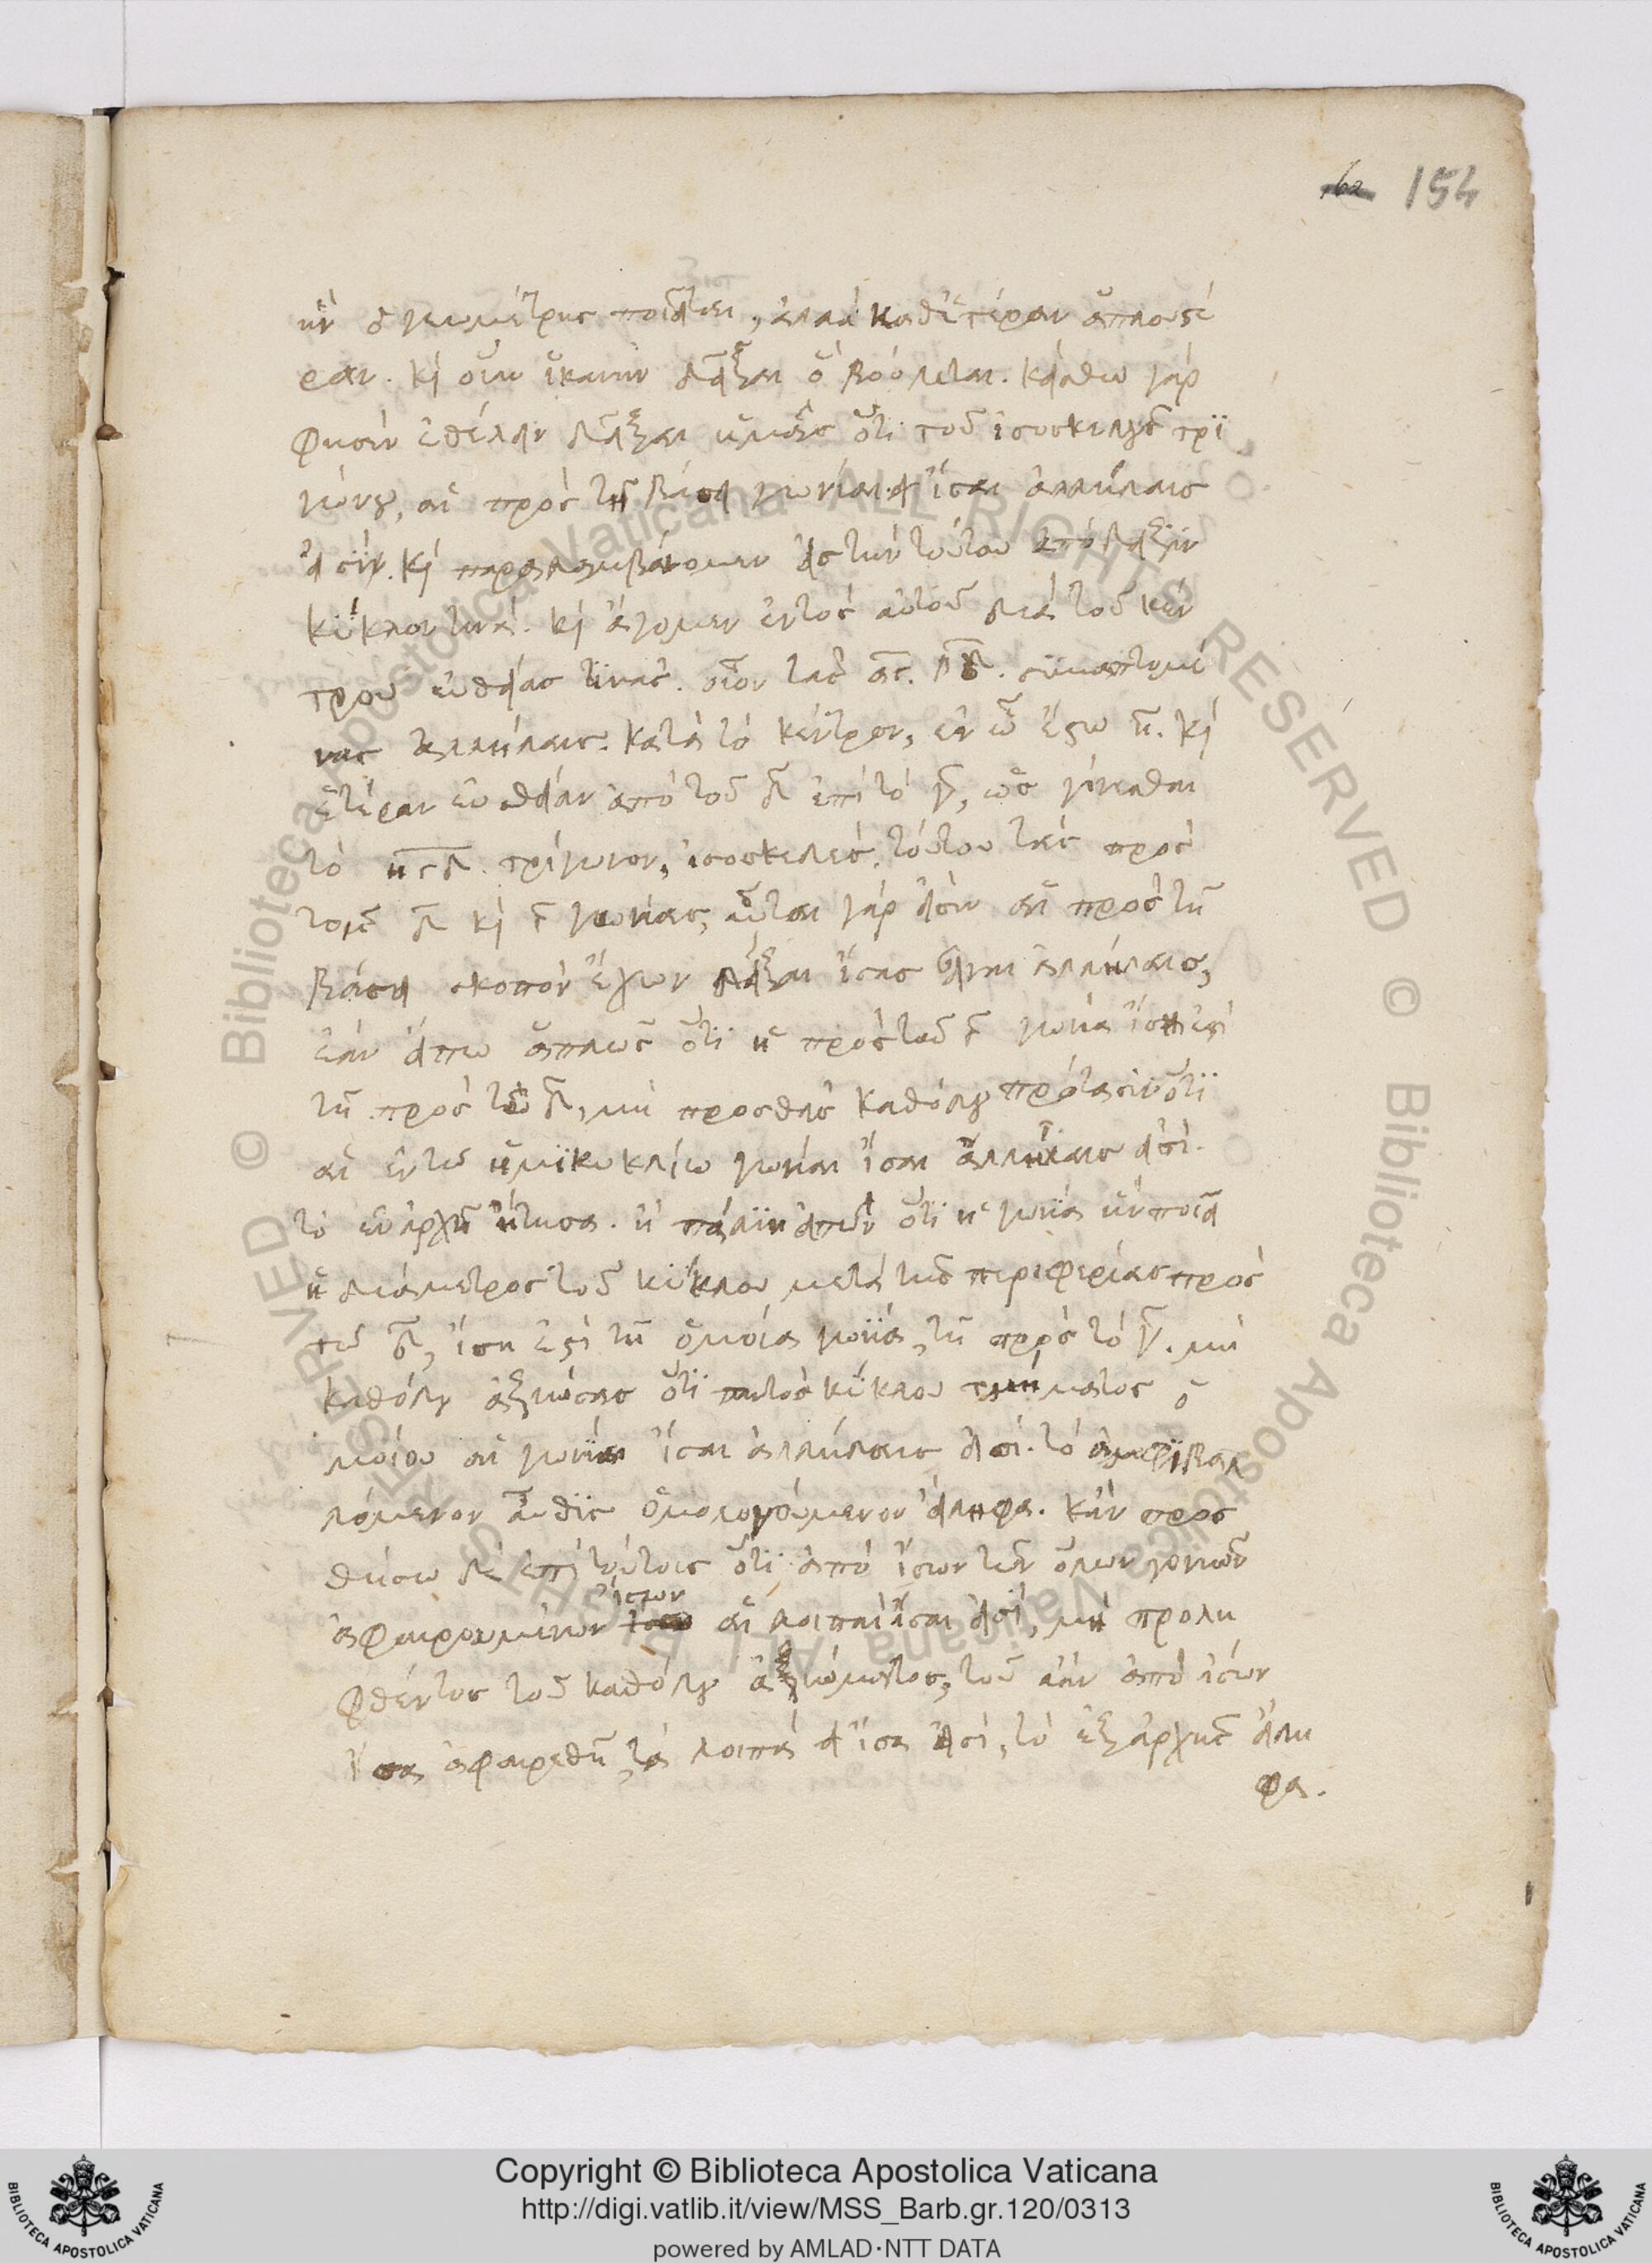 62 154
ἣν ὁ γεωμέτρης ποιεῖται, ἀλλὰ καθ' ἑτέραν ἁπλουστέ
ραν. καὶ οὖν ἱκανὴν δεῖξαι ὃ βούλεται. καθάπερ γάρ
φησιν ἐθέλειν δεῖξαι ἡμᾶς ὅτι τοῦ ἰσοσκελοῦς τρι
γώνου, αἱ πρὸς τῇ βάσει γωνίαι ἴσαι ἀλλήλαις
εἰσίν. καὶ παραλαμβάνομεν εἰς τὴν τούτου ἀπόδειξιν
κύκλον τινά. καὶ ἄγομεν ἐντὸς αὐτοῦ διὰ τοῦ κέν
τρου εὐθείας τινάς. οἷον τὰς ας. βδ. συμαπτομέ
νας ἀλλήλαις κατὰ τὸ κέντρον, ἐν ᾧ ἔστω η. καὶ
ἑτέραν εὐθείαν ἀπὸ τοῦ δ ἐπὶ τὸ γ, ὡς γίνεσθαι
τὸ ηςδ. τρίγωνον, ἰσοσκελές. τούτου τὰς πρὸς
τοῖς δ καὶ ς γωνίας, αὗται γάρ εἰσιν αἱ πρὸς τῇ
βάσει σκοπὸν ἔχων δεῖξαι ἴσας εἶναι ἀλλήλαις,
ἐὰν εἴπω ἁπλῶς ὅτι ἡ πρὸς τοῦ ς γωνία ἴση ἐστὶ
τῇ πρὸς τῷ δ, μὴ προσθεὶς καθόλου πρότασιν ὅτι
αἱ ἐν τῷ ἡμικυκλίῳ γωνίαι ἴσαι ἀλλήλαις εἰσί.
τὸ ἐν ἀρχῇ ᾔτησα. ἢ πάλιν εἰπὼν ὅτι ἡ γωνία ἣν ποιεῖ
ἡ διάμετρος τοῦ κύκλου μετὰ τῆς περιφερίας πρὸς
τῷ δ, ἴση ἐστὶ τῇ ὁμοία γωνία, τῇ πρὸς τὸ γ. μὴ
καθόλου ἀξιώσας ὅτι παντὸς κύκλου τμήματος ὁ
μοίου αἱ γωνίαι ἴσαι ἀλλήλαις εἰσί. τὸ ἀμφιβαλ
λόμενον αὖθις ὁμολογούμενον εἴληφα. κἂν προσ
θήσω δὲ ἐπὶ τούτοις ὅτι ἀπὸ ἴσων τῶν ὅλων γονιῶν
ἀφαιρουμένων ἴσων αἱ λοιπαὶ ἴσαι εἰσί, μὴ προλη
φθέντος τοῦ καθόλου ἀξιώματος, τοῦ ἐὰν ἀπὸ ἴσων
ἴσα ἀφαιρεθῇ, τὰ λοιπὰ ἴσα εἰσί, τὸ ἐξ ἀρχῆς εἴλη
φα.
Copyright © Biblioteca Apostolica Vaticana
http://digi.vatlib.it/view/MSS_Barb.gr.120/0313
powered by AMLAD·NTT DATA